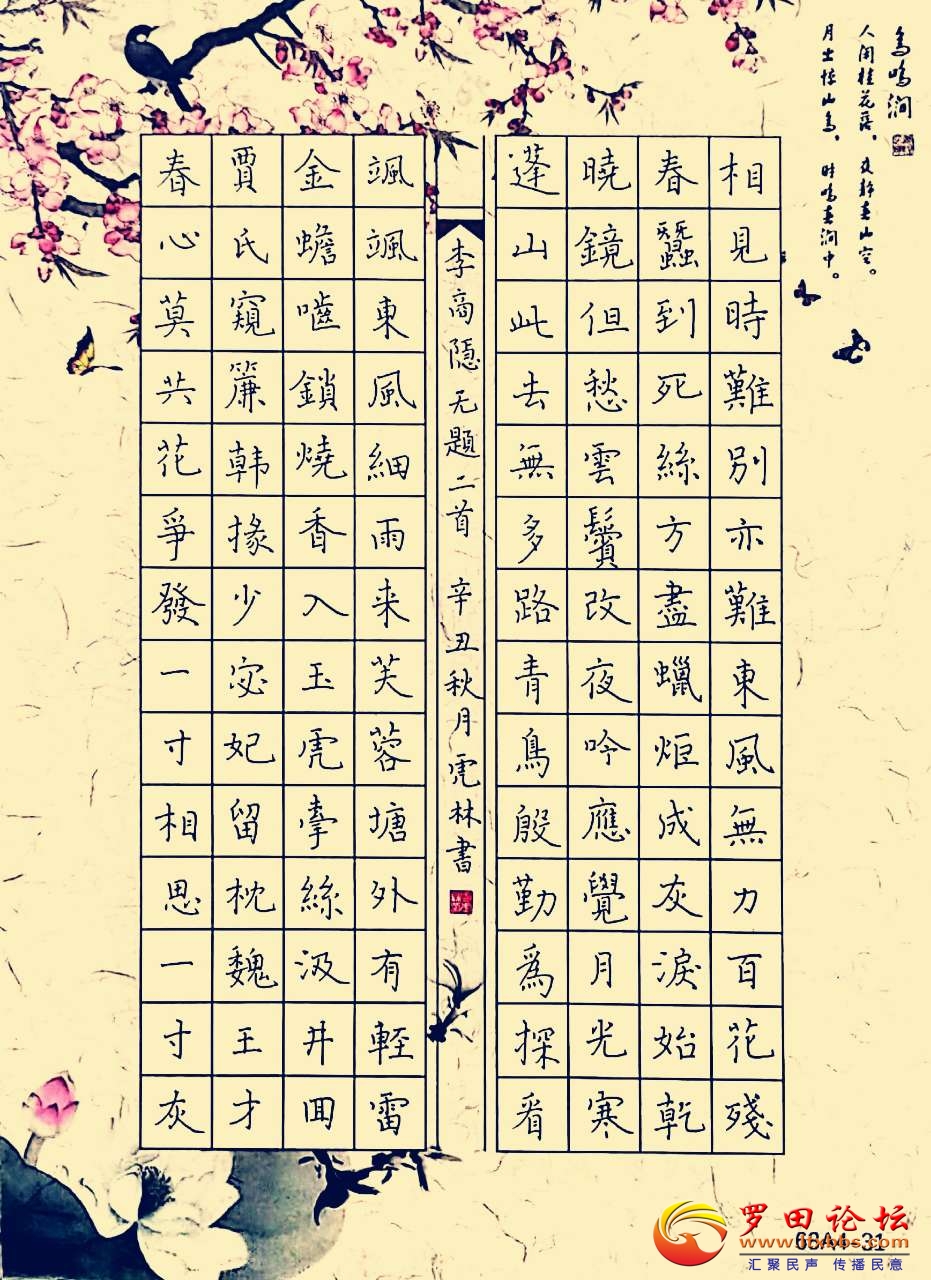 鸟鸣涧
人闲桂花落，夜静春山空。
月出惊山鸟，时鸣春涧中。
相見時難別亦難東風無力百花殘
春蠶到死絲方盡蠟炬成灰淚始乾
曉鏡但愁雲鬢改夜吟應覺月光寒
蓬山此去無多路青鳥殷勤爲探看
李商隱无題二首 辛丑秋月虎林書
颯颯東風細雨来芙蓉塘外有輕雷
金蟾嚙鎖燒香入玉虎牽絲汲井回
賈氏窺簾韩掾少宓妃留枕魏王才
春心莫共花爭發一寸相思一寸灰
罗田论坛
汇聚民声 传播民意